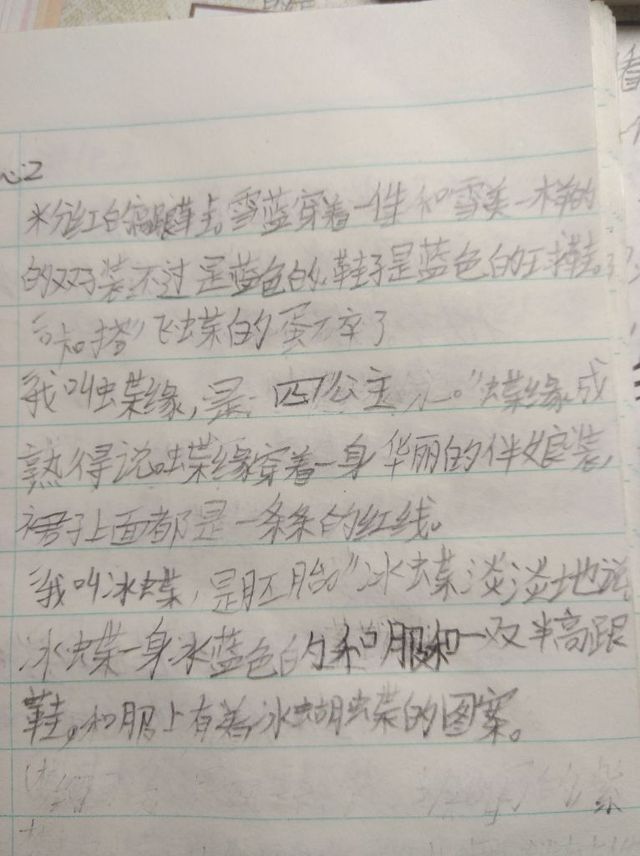 心2
粉红白高跟鞋。雪蓝穿着一件和雪美一样的
的双子装,不过是蓝色的,鞋子是蓝色的玉鞋。
飞蝶的蛋不卒了
我叫蝶缘,是四公主 心。"蝶缘成
熟得说蝶缘穿着一身华丽的伴娘装,
裙子上面都是一条条的红线。
"我叫冰蝶,是胚胎"冰蝶淡淡地说
冰蝶一身冰蓝色的和服和一双半高跟
鞋,和服上有着冰蝴蝶的图案。